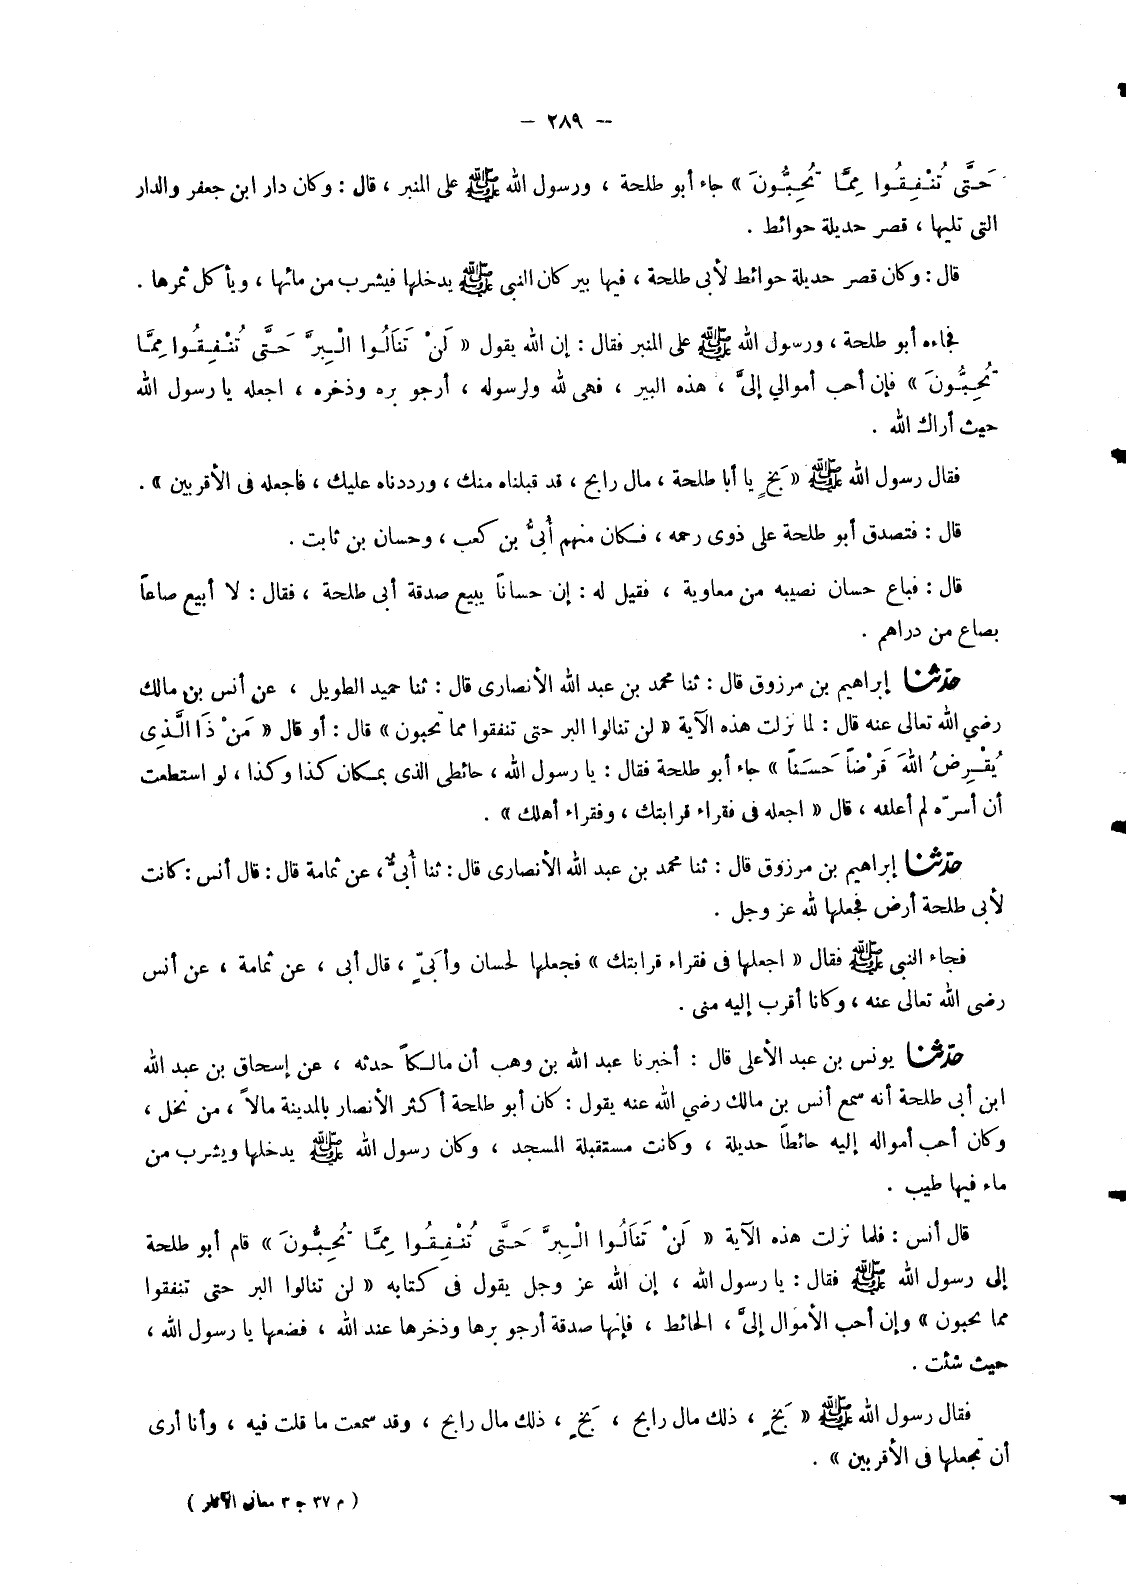 -- ٢٨٩ –
حَتَّى تُنْفِقُوا مِمَّا تُحِبُّونَ » جاء أبو طلحة ، ورسول الله ﷺ على المنبر ، قال : وكان دار ابن جعفر والدار
التى تليها ، قصر حديلة حوائط .
قال : وكان قصر حديلة حوائط لأبى طلحة ، فيها بير كان النبى ﷺ يدخلها فيشرب من مائها ، ويأكل ثمرها .
فجاءه أبو طلحة ، ورسول الله ﷺ على المنبر فقال : إن الله يقول « لَنْ تَنَالُوا الْبِرَّ حَتَّى تُنْفِقُوا مِمَّا
تُحِبُّونَ » فإن أحب أموالي إلىَّ ، هذه البير ، فهى لله ولرسوله ، أرجو بره وذخره ، اجعله يا رسول الله
حيث أراك الله .
فقال رسول الله ﷺ « بَخٍ يا أبا طلحة ، مال رابح ، قد قبلناه منك ، ورددناه عليك ، فاجعله فى الأقربين » .
قال : فتصدق أبو طلحة على ذوى رحمه ، فكان منهم أُبىُّ بن كعب ، وحسان بن ثابت .
قال : فباع حسان نصيبه من معاوية ، فقيل له : إن حساناً يبيع صدقة أبى طلحة ، فقال : لا أبيع صاعاً
بصاع من دراهم .
حدّثنا إبراهيم بن مرزوق قال : ثنا محمد بن عبد الله الأنصارى قال : ثنا حميد الطويل ، عن أنس بن مالك
رضي الله تعالى عنه قال : لما نزلت هذه الآية « لن تنالوا البر حتى تنفقوا مما تحبون » قال : أو قال « مَنْ ذَا الَّذِى
يُقْرِضُ اللهَ قَرْضاً حَسَناً » جاء أبو طلحة فقال : يا رسول الله ، حائطى الذى بمكان كذا وكذا ، لو استطعت
أن أسرّه لم أعلنه ، قال « اجعله فى فقراء قرابتك ، وفقراء أهلك » .
حدّثنا إبراهيم بن مرزوق قال : ثنا محمد بن عبد الله الأنصارى قال : ثنا أُبىٌّ ، عن ثمامة قال : قال أنس : كانت
لأبى طلحة أرض فجعلها لله عز وجل .
فجاء النبى ﷺ فقال « اجعلها فى فقراء قرابتك » فجعلها لحسان وأبىّ ، قال أبى ، عن ثمامة ، عن أنس
رضى الله تعالى عنه ، وكانا أقرب إليه منى .
حدّثنا يونس بن عبد الأعلى قال : أخبرنا عبد الله بن وهب أن مالكاً حدثه ، عن إسحاق بن عبد الله
ابن أبى طلحة أنه سمع أنس بن مالك رضي الله عنه يقول : كان أبو طلحة أكثر الأنصار بالمدينة مالاً ، من نخل ،
وكان أحب أمواله إليه حائطاً حديلة ، وكانت مستقبلة المسجد ، وكان رسول الله ﷺ يدخلها ويشرب من
ماء فيها طيب .
قال أنس : فلما نزلت هذه الآية « لَنْ تَنَالُوا الْبِرَّ حَتَّى تُنْفِقُوا مِمَّا تُحِبُّونَ » قام أبو طلحة
إلى رسول الله ﷺ فقال : يا رسول الله ، إن الله عز وجل يقول فى كتابه « لن تنالوا البر حتى تنفقوا
مما تحبون » وإن أحب الأموال إلىَّ ، الحائط ، فإنها صدقة أرجو برها وذخرها عند الله ، فضعها يا رسول الله ،
حيث شئت .
فقال رسول الله ﷺ « بَخٍ ، ذلك مال رابح ، بَخٍ ، ذلك مال رابح ، وقد سمعت ما قلت فيه ، وأنا أرى
أن تجعلها فى الأقربين » .
( م ٣٧ ج ٣ معانى الآثار )